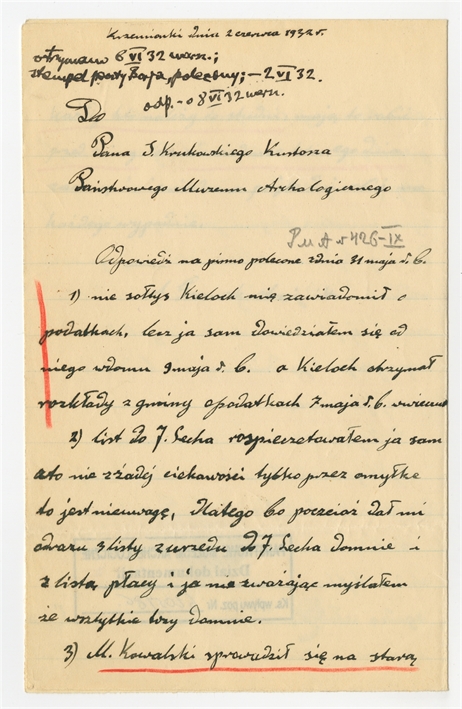 Krzemionki dnia 2 czerwca 1932 r.
otrzymano 6 VI 32 warsz.;
stempel poczty Bałt. polecony; – 2 VI 32.
odp. – o 8 VI 32 warsz.
Do
Pana S. Krukowskiego Kustosza
Państwowego Muzeum Archologicznego
PMA 426–IX
Odpowiedź na pismo polecone zdnia 31 maja b. b.
1) nie sołtys Kieloch mię zawiadomił o
podatkach, lecz ja sam dowiedziałem się od
niego wdomu 9 maja b. b. a Kieloch otrzymał
rozkłady z gminy opodatkach 7 maja b. b.
2) list do J. Lecha rospieczetowałem ja sam
ato nie zżadej ciekawości tybko przez omyłke
to jest nieuwagę, dlatego bo pocciąż dał mi
odrazu 3 listy zurzedu do J. Lecha domnie i
z listą płacy i ja nie zważając myślałem
że wsztytkie trzy domnie.
3) M. Kowalski sprowadził się na starą